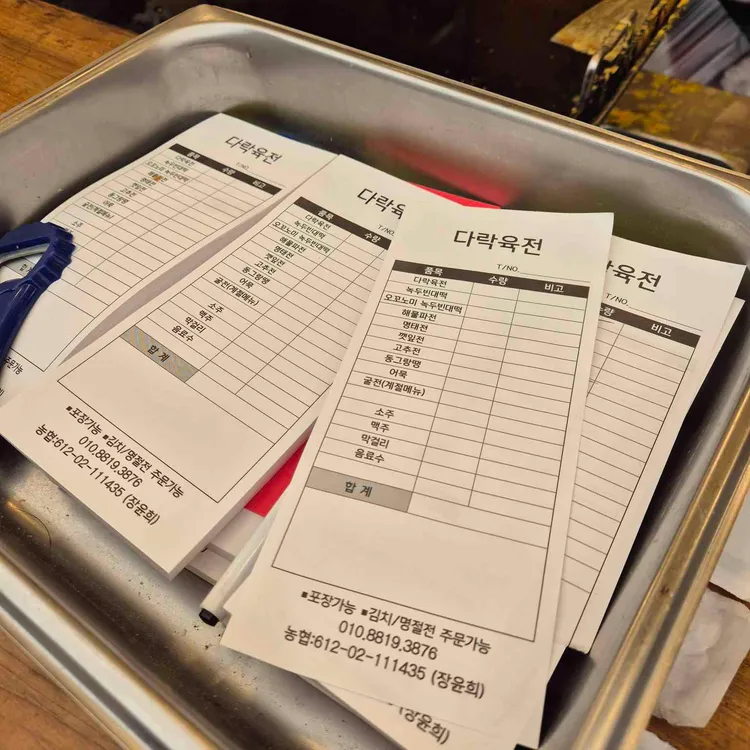 다락육전
T/NO.
품목 수량 비고
다락육전
녹두빈대떡
오꼬노미 녹두빈대떡
해물파전
명태전
깻잎전
고추전
동그랑땡
어묵
굴전(계절메뉴)
소주
맥주
막걸리
음료수
합 계
■포장가능 ■김치/명절전 주문가능
010.8819.3876
농협:612-02-111435 (장윤희)
다락육전
T/NO.
품목 수량
다락육전
녹두빈대떡
오꼬노미 녹두빈대떡
해물파전
명태전
깻잎전
고추전
동그랑땡
어묵
굴전(계절메뉴)
소주
맥주
막걸리
음료수
합 계
■포장가능 ■김치/명절전 주문가능
010.8819.3876
농협:612-02-111435 (장윤희)
다락육전
T/NO.
품목 수량 비고
다락육전
녹두빈대떡
오꼬노미 녹두빈대떡
해물파전
명태전
깻잎전
고추전
동그랑땡
어묵
굴전(계절메뉴)
소주
주문가능
육전
T/NO.
비고
(장윤희)